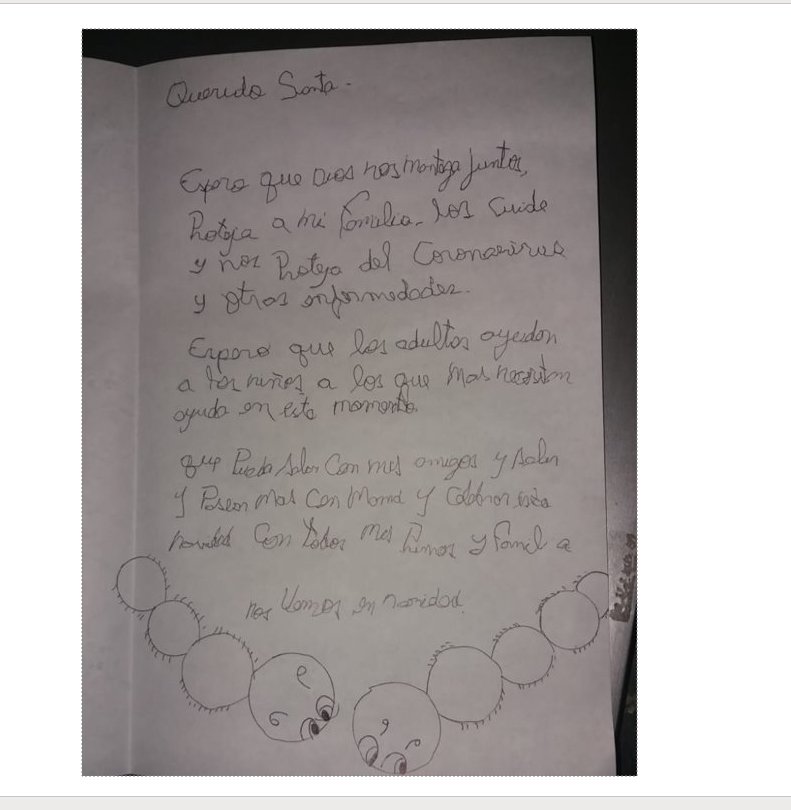 Querido Santa.
Espero que Dios nos mantega juntos,
Proteja a mi familia. los cuide
y nos Proteja del Coronavirus
y otras enfermedades.
Espero que los adultos ayudan
a los niños a los que mas necesitan
ayuda en este momento.
que Pueda salir Con mis amigos y salir
y Pasear mas Con Mama y Celebrar esta
navidad Con todos mis Primos y famil a
nos Vemos en navidad.